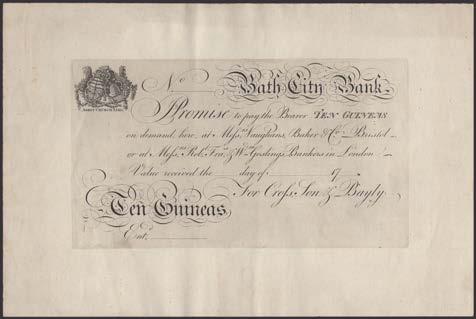 No Bath City Bank
ABBEY CHURCH YARD
I Promise to pay the Bearer TEN GUINEAS
on demand, here, at Mess.rs Vaughans, Baker & Co. Bristol
or at Mess.rs Rob.t Fra.s & W.m Goslings Bankers in London
Value received the day of 17
For Cross, Son & Bayly
Ten Guineas
Ent.